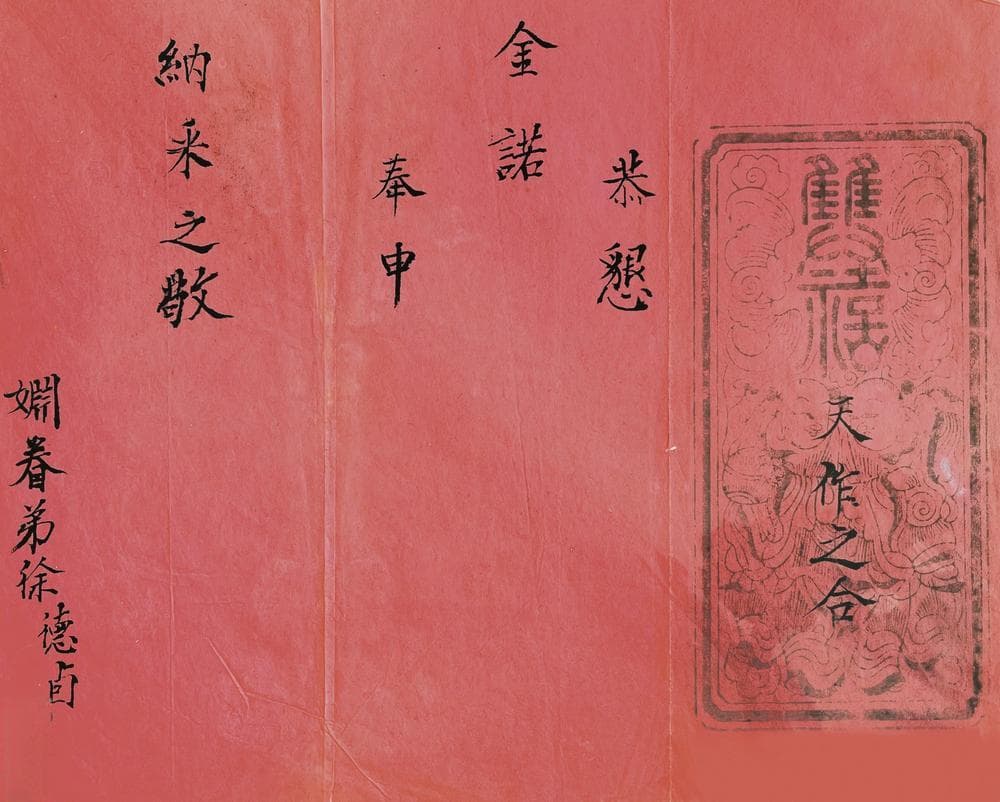 雙全信
天作之合
恭懇
金諾
奉申
納采之敬
姻眷弟徐德